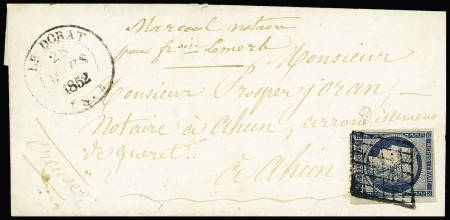 LE DORAT
28
1852
Marcoul notaire
pour
Monsieur
Monsieur Prosper Joran,
Notaire à Ahun, arrondissement
de gueret
à Ahun
creuse